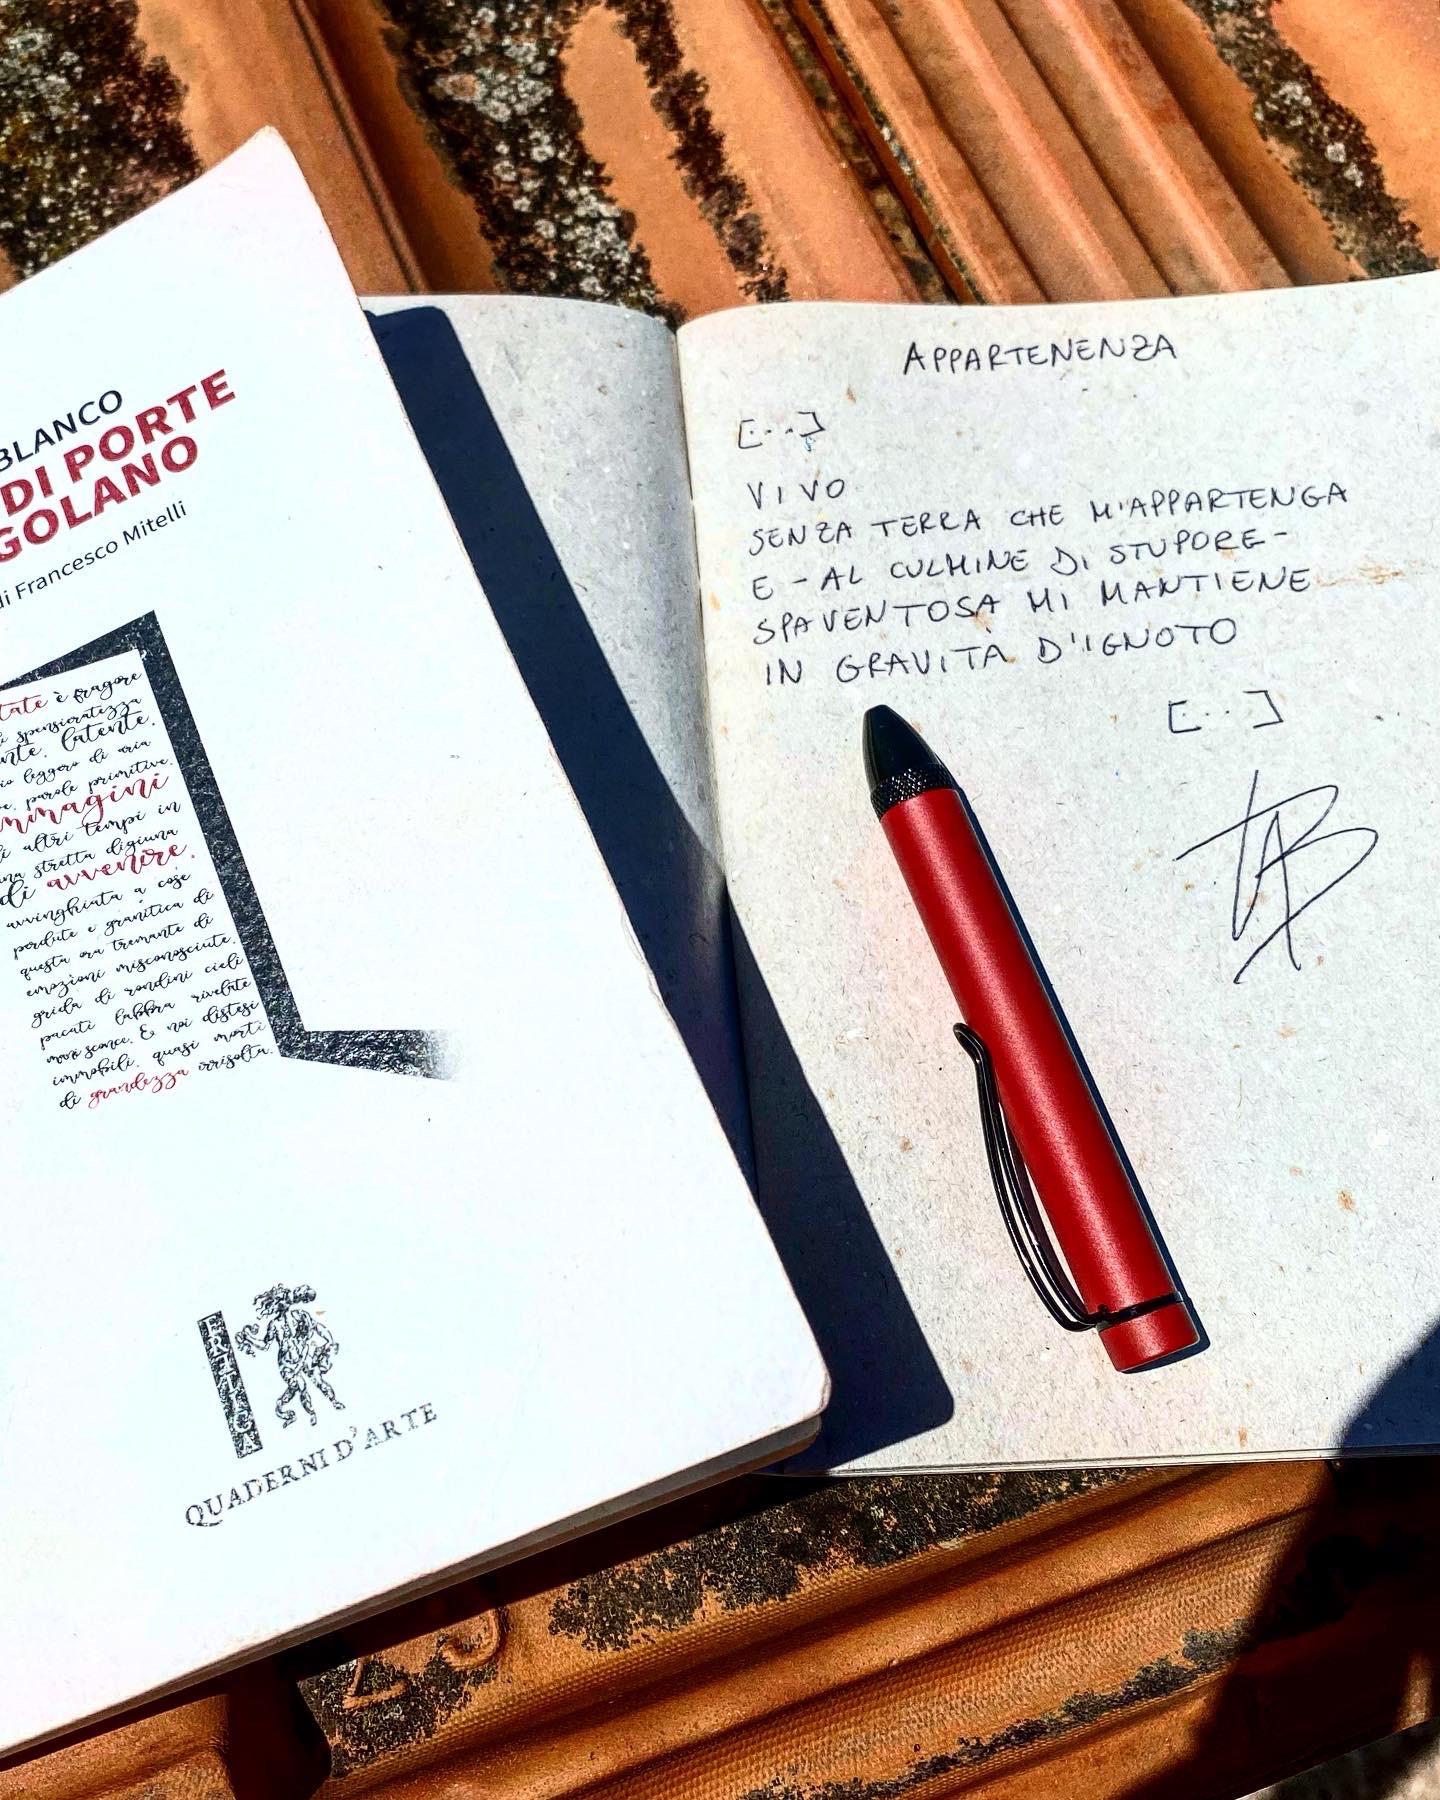 BLANCO
DI PORTE
GOLANO
di Francesco Mitelli
tate è fragore
spensieratezza
nte, latente,
leggero di aria
parole primitive.
mmagini
altri tempi in
stretta digiuna
di avvenire.
avvinghiata a cose
perdute e granitica di
questa ora tremante di
emozioni misconosciute,
grida di rondini cieli
pacati labbra rivelate
mai sconce. E noi distesi
immobili, quasi morti
di grandezza irrisolta.
QUADERNI D'ARTE
APPARTENENZA
[...]
VIVO
SENZA TERRA CHE M'APPARTENGA
E - AL CULMINE DI STUPORE -
SPAVENTOSA MI MANTIENE
IN GRAVITÀ D'IGNOTO
[...]